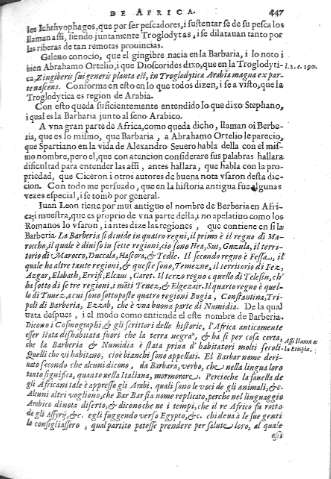 DE AFRICA. 447
los Ichthyophagos, que por ser pescadores, i sustentarse de su pesca los
llaman assi, siendo juntamente Troglodytas, i se dilatauan tanto por
las riberas de tan remotas prouincias.
Galeno conocio, que el gingibre nacia en la Barbaria, i lo noto i
bien Abrahamo Ortelio, i que Dioscorides dixo, que en la Troglodyti-
ca, Zingiberis sui generis planta est, in Troglodytica Arabia magna ex par-
te nascens. Conforma en esto en lo que todos dizen, i se a visto, que la
Troglodytica es region de Arabia.
Con esto queda suficientemente entendido lo que dixo Stephano,
i qual es la Barbaria junto al seno Arabico.
A vna gran parte de Africa, como queda dicho, llaman oi Berbe-
ria, que es lo mismo, que Barbaria, a Abrahamo Ortelio le parecio,
que Spartiano en la vida de Alexandro Seuero habla della con el mis-
mo nombre, pero el, que con atencion considerare sus palabras hallara
dificultad para entenderlas assi, antes hallara, que habla con la pro-
priedad, que Ciceron i otros autores de buena nota vsaron desta dic-
cion. Con todo me persuado, que en la historia antigua fue algunas
vezes especial, i se tomò por general.
Iuan Leon tiene por mui antiguo el nombre de Berberia en Afri-
ca, i muestra, que es proprio de vna parte della, no apelatiuo como los
Romanos lo vsaron, i antes dize las regiones, que contiene en si la
Berberia. La Barberia si diuide in quatro regni, il primo è il regno di Ma-
rocho, il quale è diuiso in sette regioni, cio sono Hea, Sus, Guzula, il terri-
torio di Marocco, Duccala, Hascora, & Tedle. Il secondo regno è Fessa, il
quale ha altre tante regioni, & queste sono, Temezne, il territorio di Fez,
Azgar, Elabath, Errifi, Elcauz, Garet. Il terzo regno è quello di Telesin, ch'
ha sotto di se tre regioni, Tenez, & Elgezair. Il quarto regno è quel-
lo di Tunez, a cui sono sottoposte quatro regioni Bugia, Constantina, Tri-
poli di Barberia, Ezzab, che è una buona parte di Numidia. De la qual
trata despues, i el modo como entiende el este nombre de Barberia.
Dicono i Cosmographi & gli scrittori delle historie, l'Africa anticamente
esser stata dishabitata fuori che la terra negra, & ha si per cosa certa,
che la Barberia & Numidia è stata priua d'habitatori molti secoli.
Quelli che vi habitano, cioe bianchi sono appellati. El Barbar nome deri-
uato secondo che alcuni dicono, da Barbara, verbo, che nella lingua loro
tanto significa, quanto nella Italiana, mormorare. Percioche la fauella de
gli Africani tale è appresso gli Arabi, quali sono le voci de gli animali, &c.
Alcuni altri vogliono, che Bar Bar sia nome replicato, perche nel linguaggio
Arabico dinota diserto, & dicono che ne i tempi, che il re Africo fu rotto
da gli Assyrij, &c. egli fuggendo verso Egypto, &c. chiedeua à le sue genti
lo consigliassero, qual partito potesse prendere per salute loro, al quale